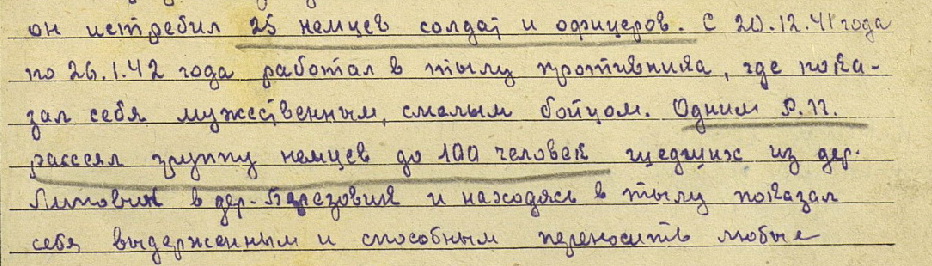 он истребил 25 немцев солдат и офицеров. С 20.12.41 года
по 26.1.42 года работал в тылу противника, где пока-
зал себя мужественным, смелым бойцом. Одним Р.П.
рассеял группу немцев до 100 человек шедших из дер.
в дер. Березовик и находясь в тылу показал
себя выдержанным и способным переносить любые